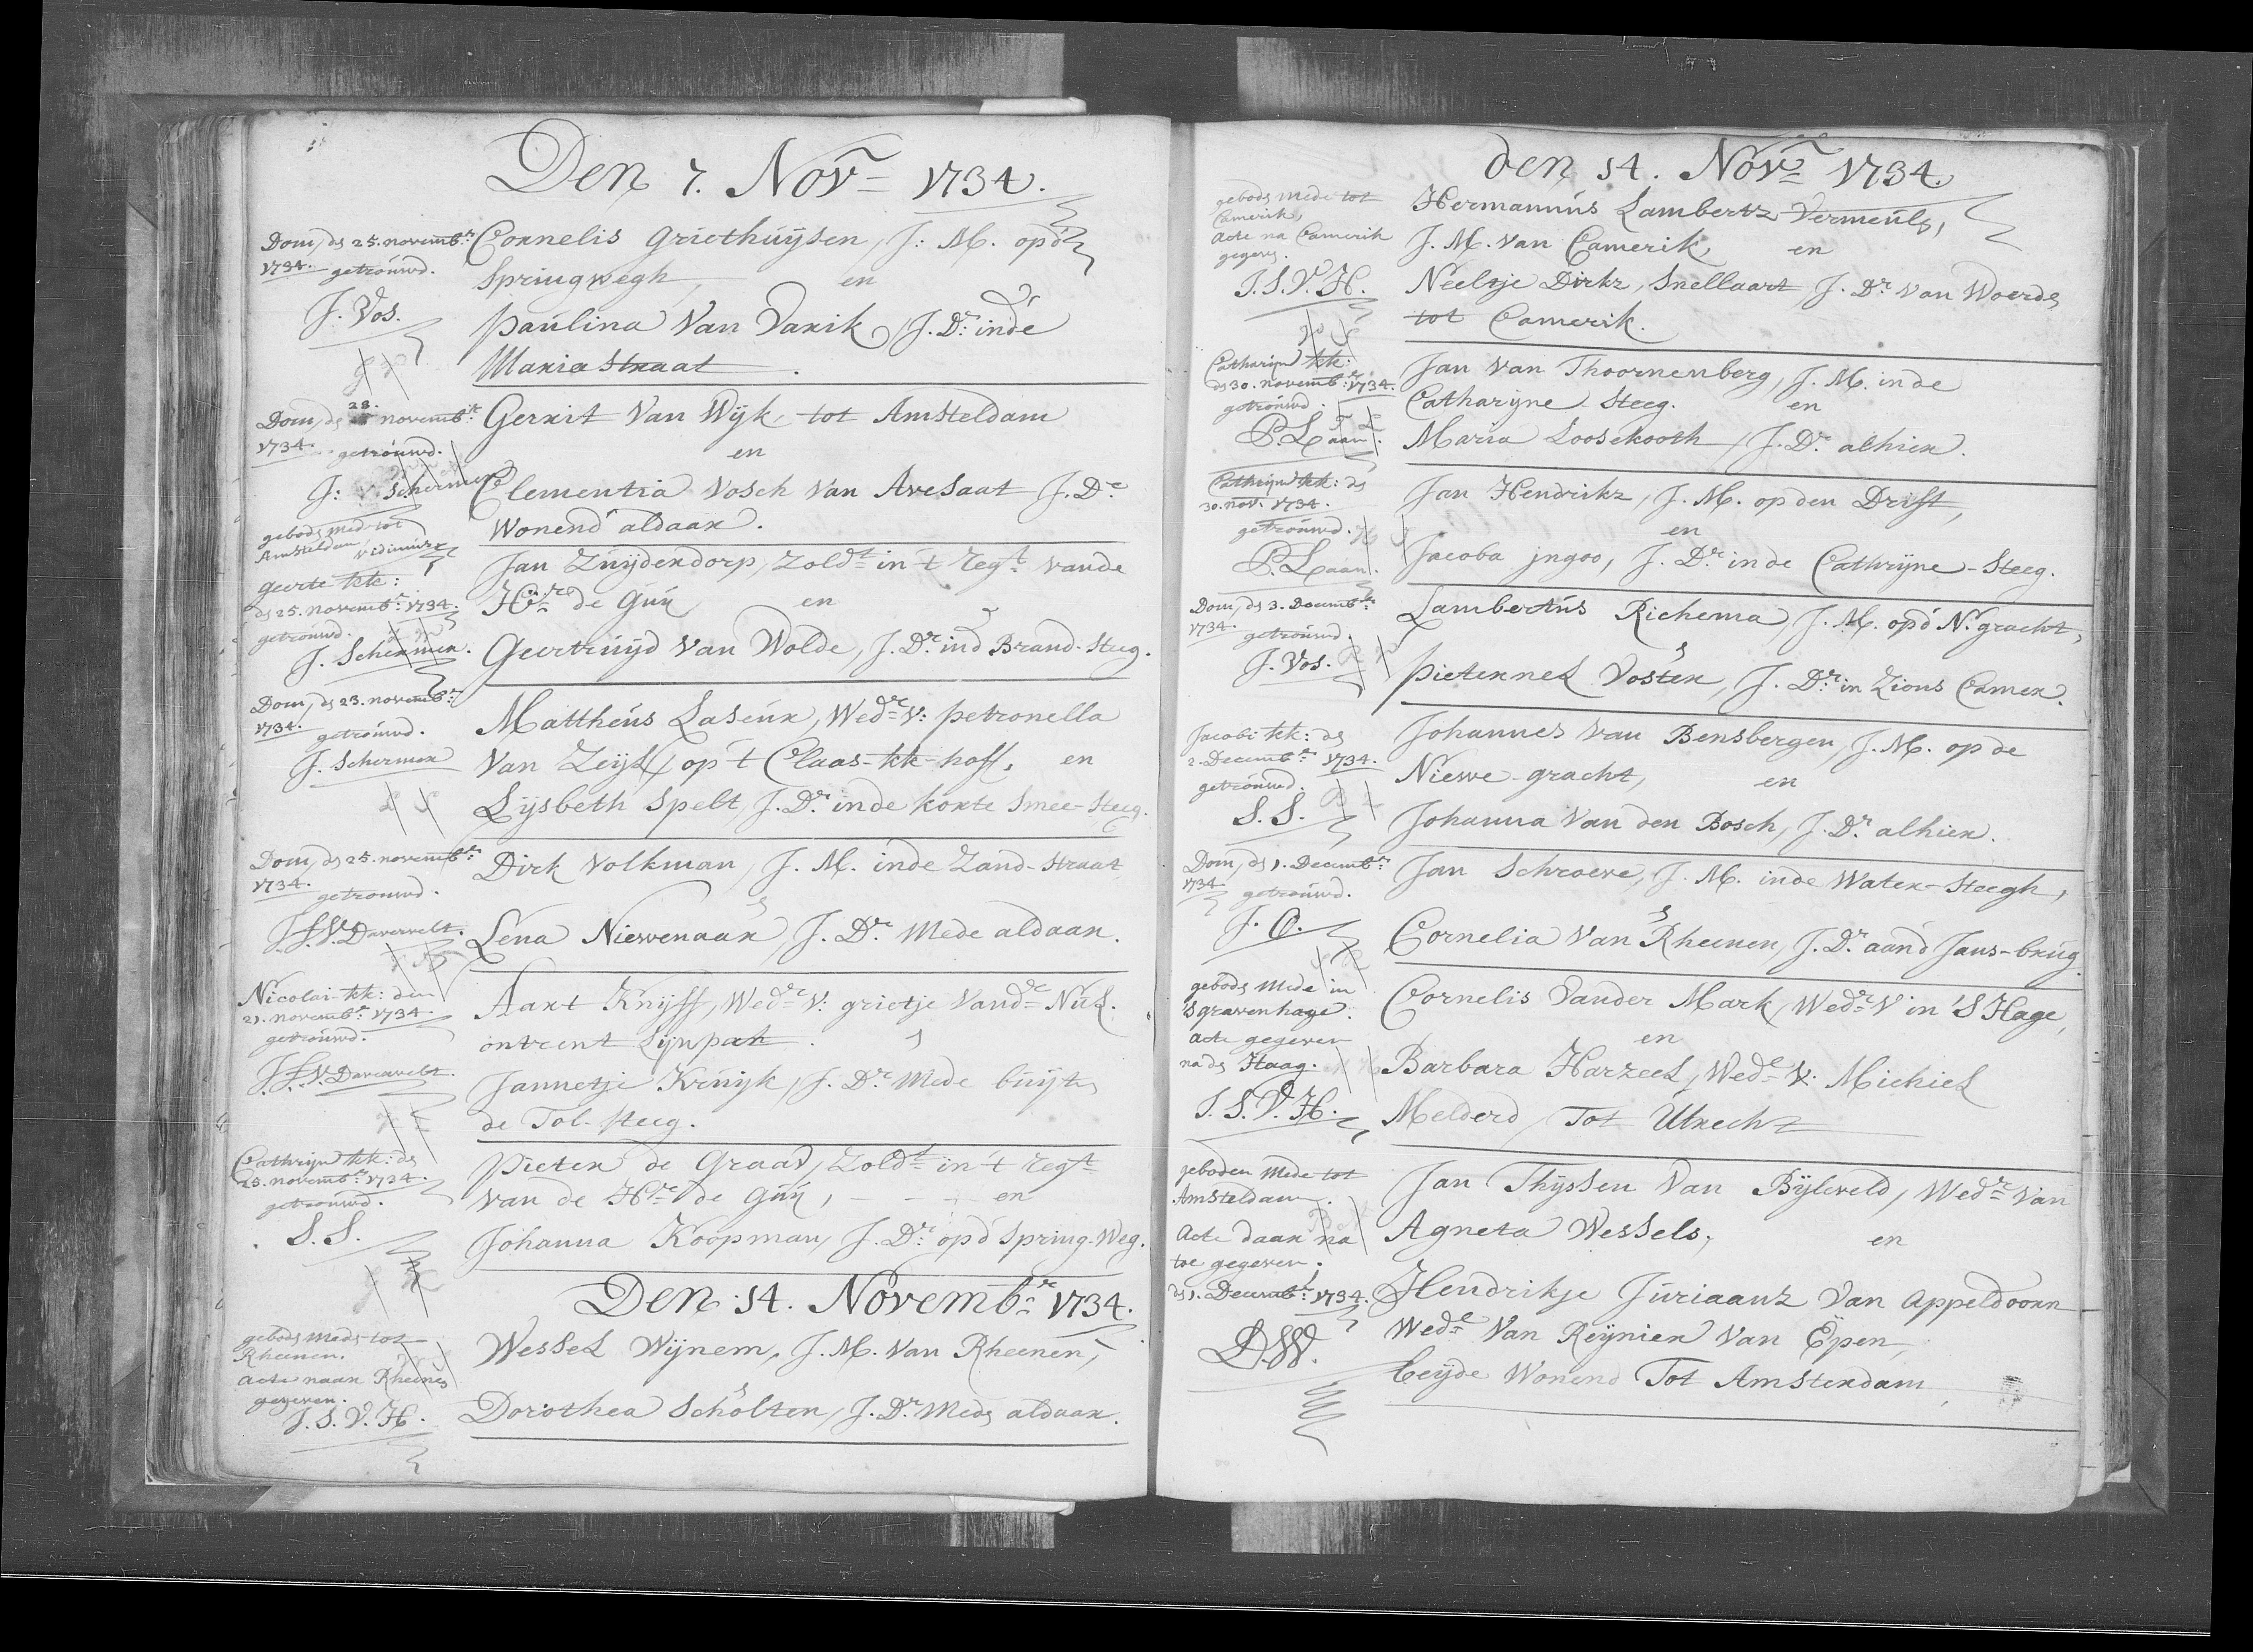 Den 7. Nov.r 1734.
Dom, ds 25. novemb.r
1734. getrouwd.
J. Vos.
Cornelis Griethuijsen, J: M. op d'
Springwegh, en
Paulina Van Varik, J. D.r in de
Maria Straat.
Dom, ds 28. novemb.r
1734. getrouwd.
J: Schermer
gebods med tot
Amsteldam, vidimus
Gerrit Van Wijk, tot Amsteldam
en
Clementia Vosch Van Avesaat J. D.r
Wonend' aldaar.
geerte kk:
ds 25. novemb.r 1734.
getrouwd.
J. Schermer.
Jan Zuijdendorp, Zold.t in 't Reg.t vande
H.r de Guy en
Geertruijd Van Wolde, J. D.r in d Brand-Steeg.
Dom, ds 23. novemb.r
1734. getrouwd.
J. Schermer
Mattheus Laseur, Wed.r V: petronella
Van Zeijl, op 't Claas-kk-hoff, en
Lijsbeth Spelt, J. D.r in de korte Smee-Steeg.
Dom, ds 25. novemb.r
1734. getrouwd.
J. F. V. Davervelt.
Dirk Volkman, J. M. in de Zand-Straat
Lena Niewenaar, J. D.r Mede aldaar.
Nicolai-kk: den
21. novemb.r 1734.
getrouwd.
J. F. V. Davervelt.
Aart Knijff, Wed.r V: grietje Vand.r Nul.
ontrent Lijnpat.
Jannetje Kruijk, J. D.r Mede buijte
de Tol-steeg.
Cathrijn kk: ds
25. novemb.r 1734.
getrouwd.
S. S.
Pieter de Graav, Zold.t in 't Reg.t
van de H.r de Guy, en
Johanna Koopman, J. D.r op d' Spring-Weg.
Den 14. Novemb.r 1734.
gebods meds tot
Rheenen.
acte naar Rheenen
gegeven.
J. S. V. H.
Wessel Wijnem, J. M. Van Rheenen,
Dorothea Scholten, J. D.r Meds aldaar.
den 14. Nov.r 1734.
gebods mede tot
Camerik,
acte na Camerik
gegeven.
J. S. V. H.
Hermannus Lambertz Vermeul,
J. M. van Camerik, en
Neeltje Dirkz, Snellaart, J. D.r Van Woerde
tot Camerik.
Catharijn kk:
ds 30. novemb.r 1734.
getrouwd.
P. Laan.
Jan Van Thoornenberg, J. M. in de
Catharijne-Steeg. en
Maria Loosekooth, J. D.r alhier.
Cathrijn kk: ds
30. nov. 1734.
getrouwd.
P. Laan.
Jan Hendrikz, J. M. op den Drift,
en
Jacoba jngoo, J. D.r in de Cathrijne-Steeg.
Dom, ds 3. Decemb.r
1734. getrouwd.
J. Vos.
Lambertus Richema, J. M. op d' N. gracht,
Pieternel Voster, J. D.r in Zions Camer.
Jacobi kk: ds
2. Decemb.r 1734.
getrouwd.
S. S.
Johannes Van Bensbergen, J. M. op de
Niewe-gracht, en
Johanna Van den Bosch, J. D.r alhier.
Dom, ds 1. Decemb.r
1734. getrouwd.
J. O.
Jan Schroeve, J. M. in de Water-Steegh,
Cornelia Van Rheenen, J. D.r aand Jans-brug.
gebods Mede in
'Sgravenhage.
acte gegeven
na ds Haag.
J. S. V. H.
Cornelis Vander Mark, Wed.r V in 'S Hage,
en
Barbara Harzeel, Wed.e V: Michiel
Melderd, Tot Utrecht
geboden Mede tot
Amsteldam.
Acte daar na
toe gegeven.
ds 1. Decemb.r 1734.
D. W.
Jan Thijssen Van Bijleveld, Wed.r Van
Agneta Wessels, en
Hendrikje Juriaanz Van Appeldoorn
Wed.e Van Reijnier Van Epen,
beijde Wonend Tot Amsterdam